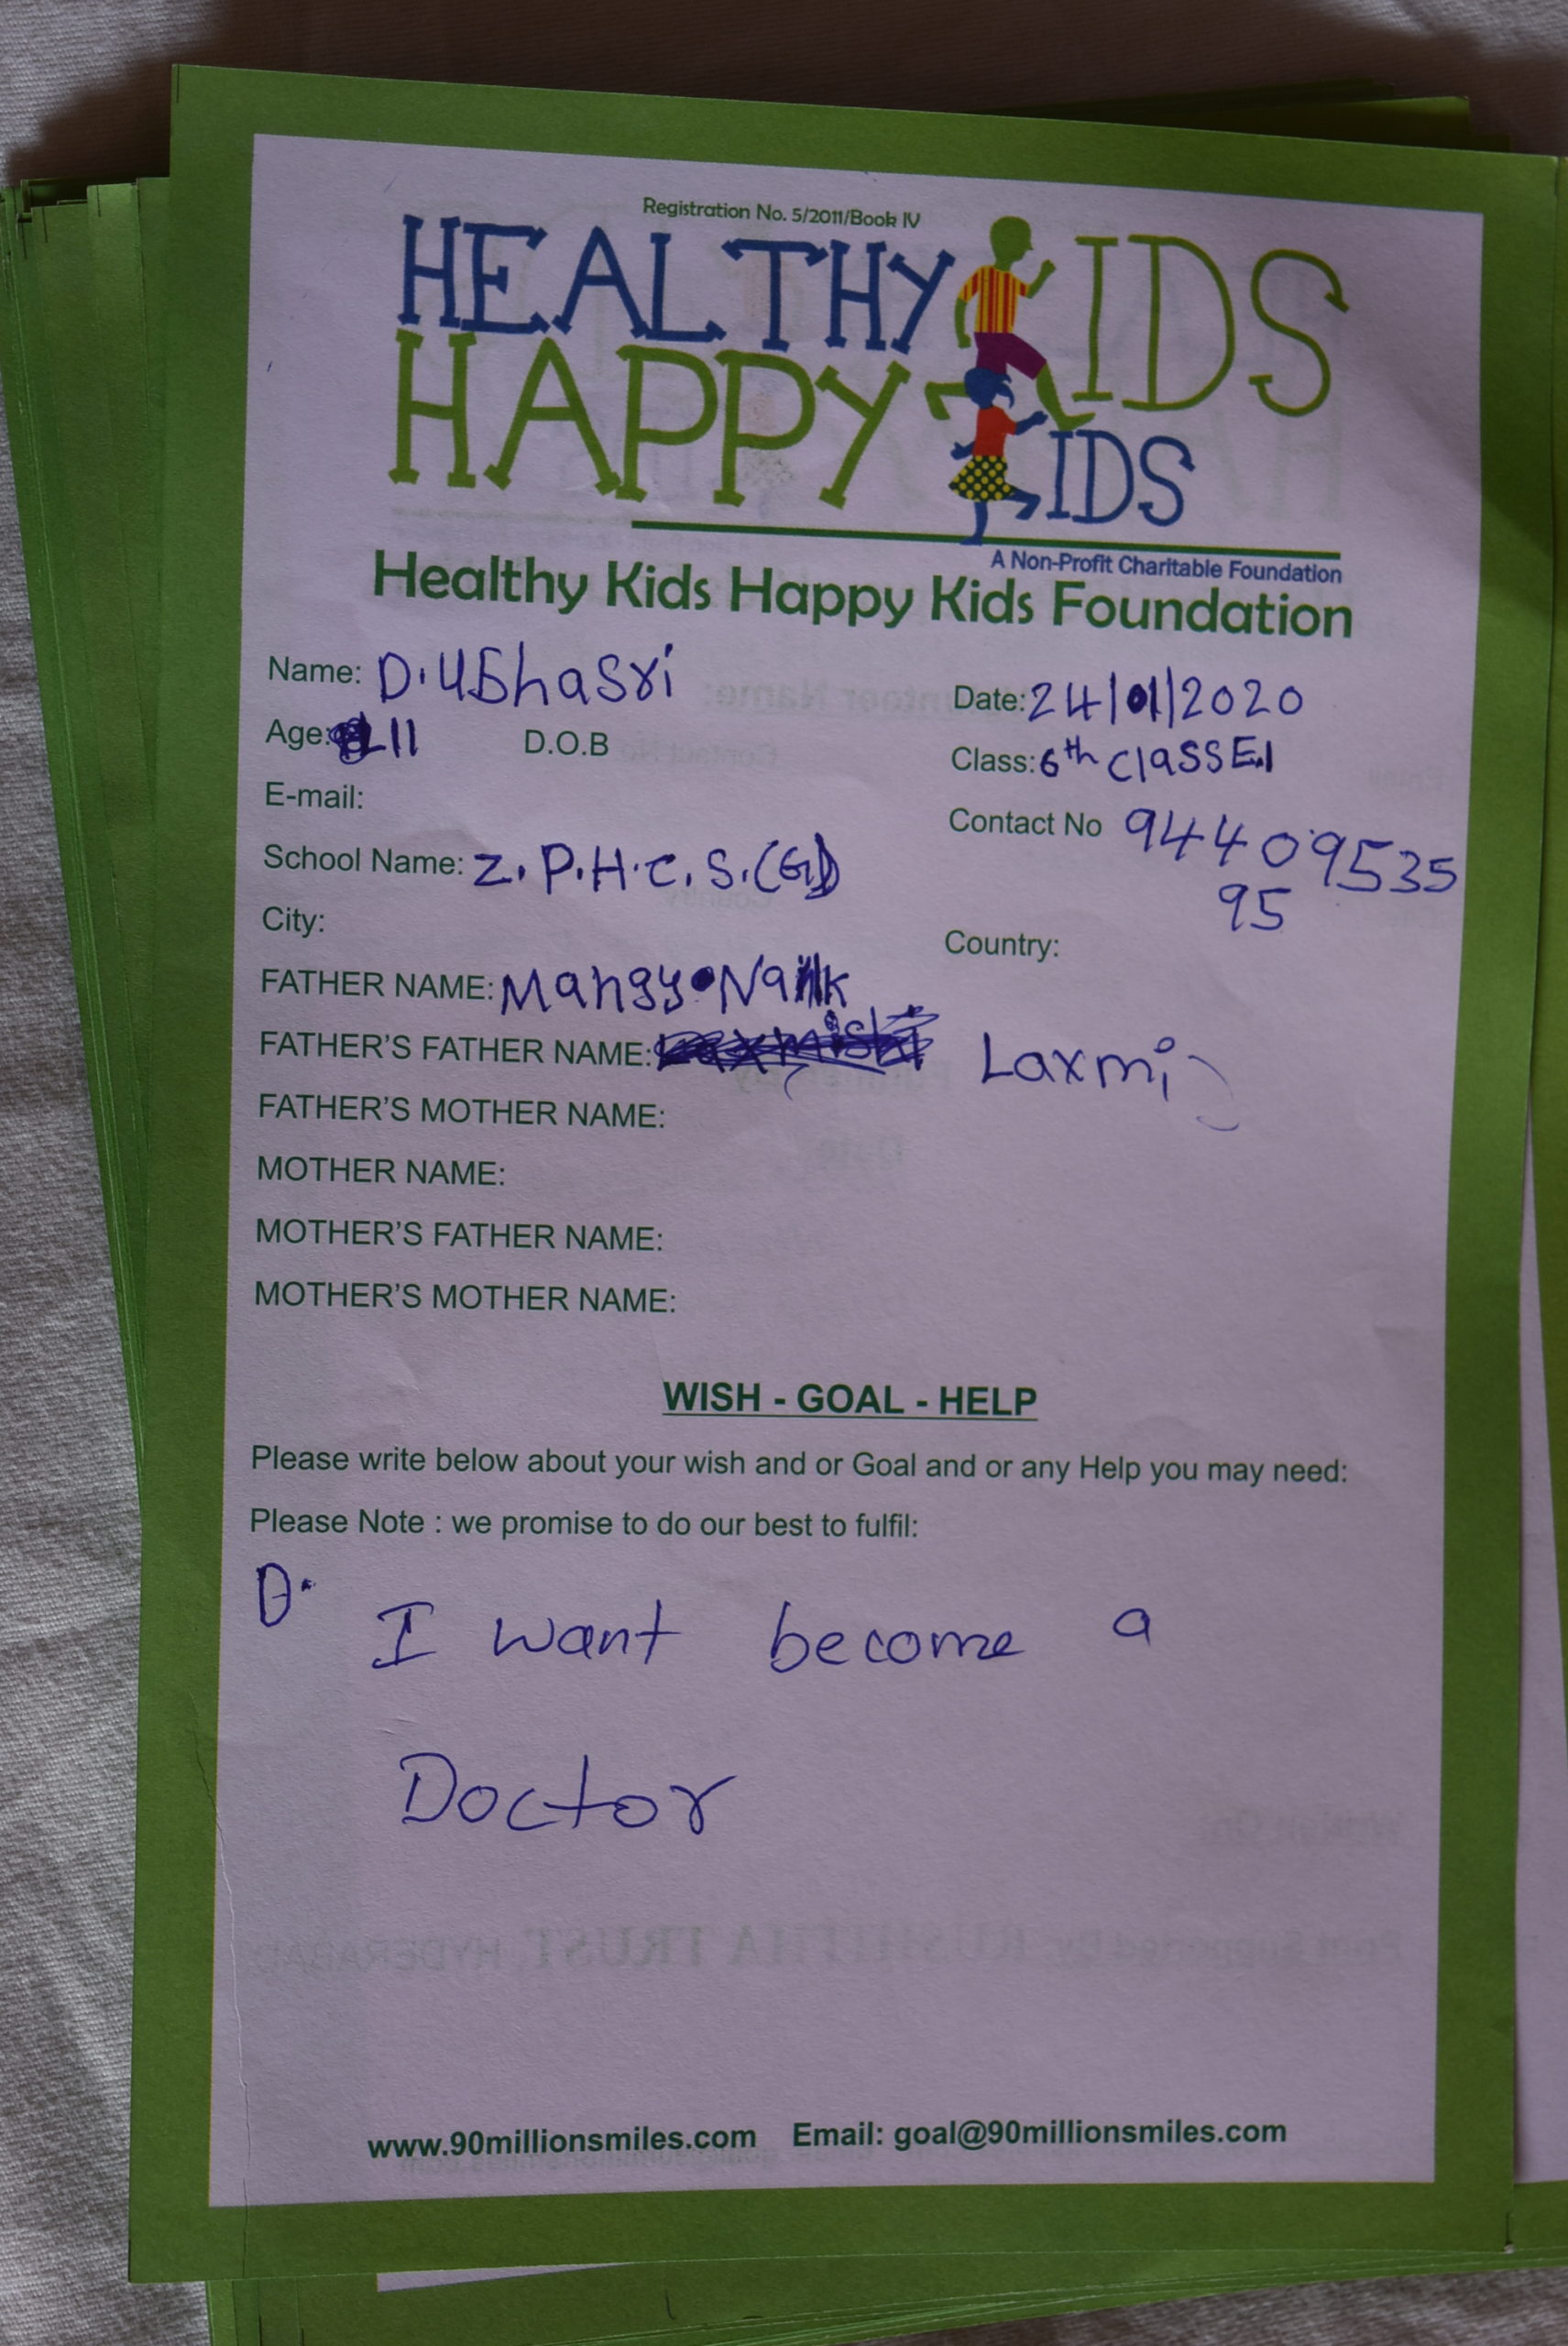 Registration No. 5/2011/Book IV
HEALTHY KIDS
HAPPY KIDS
A Non-Profit Charitable Foundation
Healthy Kids Happy Kids Foundation
Name: D.UBhaSri
Date: 24/01/2020
Age: 11 D.O.B
Class: 6th ClaSS E.1
E-mail:
Contact No 944409535
95
School Name: Z.P.H.C.S.(G)
City:
Country:
FATHER NAME: Mangy Naik
FATHER'S FATHER NAME: Laxmi
FATHER'S MOTHER NAME:
MOTHER NAME:
MOTHER'S FATHER NAME:
MOTHER'S MOTHER NAME:
WISH - GOAL - HELP
Please write below about your wish and or Goal and or any Help you may need:
Please Note : we promise to do our best to fulfil:
D.
I want become a
Doctor
www.90millionsmiles.com Email: goal@90millionsmiles.com